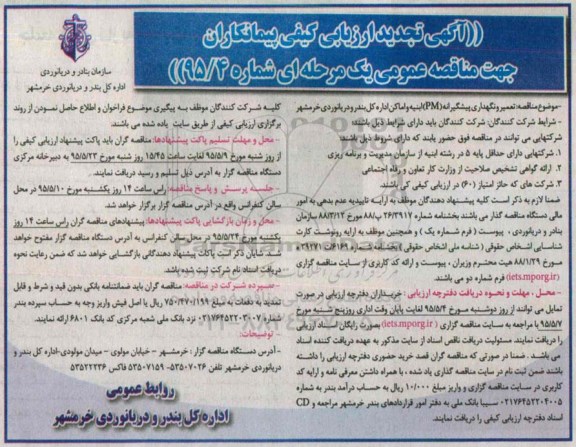 ((آگهی تجدید ارزیابی کیفی پیمانکاران
جهت مناقصه عمومی یک مرحله ای شماره ۹۵/۴))
سازمان بنادر و دریانوردی
اداره کل بندر و دریانوردی خرمشهر
-موضوع مناقصه: تعمیر و نگهداری پیشگیرانه (PM) ابنیه و اماکن اداره کل بندر و دریانوردی خرمشهر
- شرایط شرکت کنندگان: شرکت کنندگان باید دارای شرایط ذیل باشند:
شرکتهایی می توانند در مناقصه فوق حضور یابند که دارای شروط ذیل باشند:
۱. شرکتهایی دارای حداقل پایه ۵ در رشته ابنیه از سازمان مدیریت و برنامه ریزی
۲. ارائه گواهی تشخیص صلاحیت از وزارت کار تعاون و رفاه اجتماعی
۳. شرکت های که حائز امتیاز (۶۰) در ارزیابی کیفی کی باشند.
ضمنا لازم به ذکر است کلیه پیشنهاد دهندگان موظف به ارایه تاییدیه عدم بدهی به امور
مالی دستگاه مناقصه گذار می باشند بخشنامه شماره ۲۶/۳۹۱۷ب/۸۸ مورخ ۸۸/۳/۱۲ سازمان
بنادر و دریانوردی ، پیوست ( فرم شماره یک ) و همچنین موظف به ارایه رونوشت کارت
شناسایی اشخاص حقوقی ( شناسه ملی اشخاص حقوقی
مورخ ۸۸/۱/۲۹ هیت محترم وزیران ، پیوست و ارائه کد کاربری از سایت مناقصه گزاری
(iets.mporg.ir) فرم شماره دو می باشند.
-محل ، مهلت و نحوه دریافت دفترچه ارزیابی : خریداران دفترچه ارزیابی در صورت
تمایل می توانند از روز دوشنبه مورخ ۹۵/۵/۴ لغایت پایان وقت اداری روز پنج شنبه مورخ
۹۵/۵/۷ با مراجعه به سایت مناقصه گزاری ( iets.mporg.ir) بصورت رایگان اسناد ارزیابی
را دریافت نمایند. مسئولیت دریافت ناقص اسناد از سایت مذکور به عهده دریافت کننده اسناد
می باشد . ضمنا در صورتی که مناقصه گران قصد خرید حضوری دفترچه ارزیابی را داشته
باشند ضمن ثبت نام در سایت مناقصه گذاری یاد شده ، با همراه داشتن معرفی نامه و ارایه کد
کاربری در سایت مناقصه گزاری و واریز مبلغ ۱۰/۰۰۰ ریال به حساب درآمد بندر به شماره
۰۲۱۷۶۴۵۲۲۰۴۰۰۵ سیبا بانک ملی به دفتر امور قراردادهای بندر خرمشهر مراجعه و CD
اسناد دفترچه ارزیابی کیفی را دریافت نمایند.
کلیه شرکت کنندگان موظف به پیگیری موضوع فراخوان و اطلاع حاصل نمودن از روند
برگزاری ارزیابی کیفی از طریق سایت یاده شده می باشند.
- محل و مهلت تسلیم پاکت پیشنهادها: مناقصه گران باید پاکت پیشنهاد ارزیابی کیفی را
از روز شنبه مورخ ۹۵/۵/۹ لغایت ساعت ۱۵/۴۵ روز شنبه مورخ ۹۵/۵/۲۳ به دبیرخانه مرکزی
دستگاه مناقصه گزار به آدرس ذیل تسلیم و رسید دریافت نمایند.
- جلسه پرسش و پاسخ مناقصه: راس ساعت ۱۴ روز یکشنبه مورخ ۹۵/۵/۱۰ در محل
سالن کنفرانس واقع در آدرس مناقصه گزار برگزار خواهد شد.
- محل و زمان بازگشایی پاکت پیشنهادها: پیشنهادهای مناقصه گران راس ساعت ۱۴ روز
یکشنبه مورخ ۹۵/۵/۲۴ در محل سالن کنفرانس به آدرس دستگاه مناقصه گزار مفتوح خواهد
شد. شایان ذکر است پاکات پیشنهاد دهندگانی بازگشایی خواهد شد که ضمن رعایت نحوه
دریافت اسناد نام شرکت ثبت شده باشد.
-سپرده شرکت در مناقصه: مناقصه گران باید ضمانتنامه بانکی بدون قید و شرط و قابل
تمدید به دفعات به مبلغ ۷۵۰/۴۷۰/۱۱۹۹ ریال یا اصل فیش واریز وجه به حساب سپرده بندر
شماره ۰۲۱۷۶۴۵۲۲۰۳۰۰۷ نزد بانک ملی شعبه مرکزی کد بانک ۶۸۰۱ ارائه نمایند.
- توضیحات:
- آدرس دستگاه مناقصه گزار : خرمشهر – خیابان مولوی – میدان مولودی – اداره کل بندر و
دریانوردی خرمشهر تلفن ۵۳۵۰۷۰۲۶– ۵۳۵۰۷۱۵۹ فاکس ۵۳۵۲۲۲۳۶
روابط عمومی
اداره کل بندر و دریانوردی خرمشهر